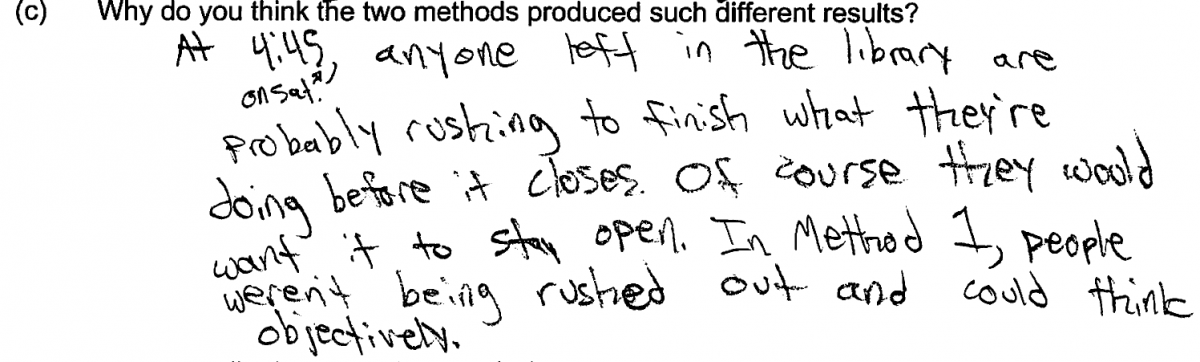 (c) Why do you think the two methods produced such different results?
At 4:45, anyone left in the library are
on Sat.
probably rushing to finish what they're
doing before it closes. Of course they would
want it to stay open. In Method 1, people
weren't being rushed out and could think
objectively.